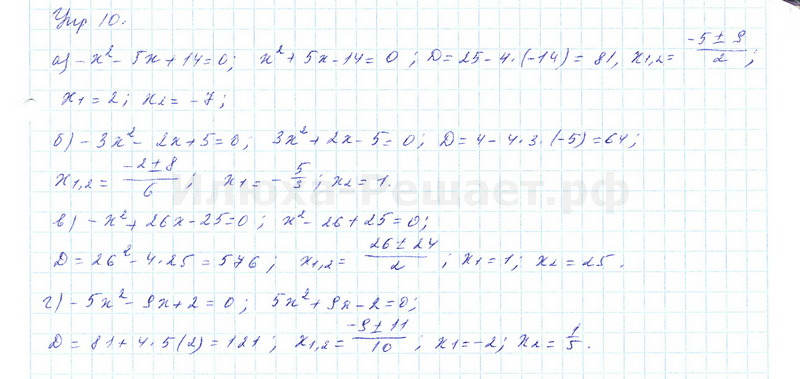 Упр 10.
а) -x² - 5x + 14 = 0; x² + 5x - 14 = 0; D = 25 - 4·(-14) = 81, x1,2 = (-5 ± 9)/2;
x1 = 2; x2 = -7;
б) -3x² - 2x + 5 = 0; 3x² + 2x - 5 = 0; D = 4 - 4·3·(-5) = 64;
x1,2 = (-2 ± 8)/6; x1 = -5/3; x2 = 1.
Илюха-Решает.рф
в) -x² + 26x - 25 = 0; x² - 26 + 25 = 0;
D = 26² - 4·25 = 576; x1,2 = (26 ± 24)/2; x1 = 1; x2 = 25.
г) -5x² - 9x + 2 = 0; 5x² + 9x - 2 = 0;
D = 81 + 4·5(2) = 121; x1,2 = (-9 ± 11)/10; x1 = -2; x2 = 1/5.